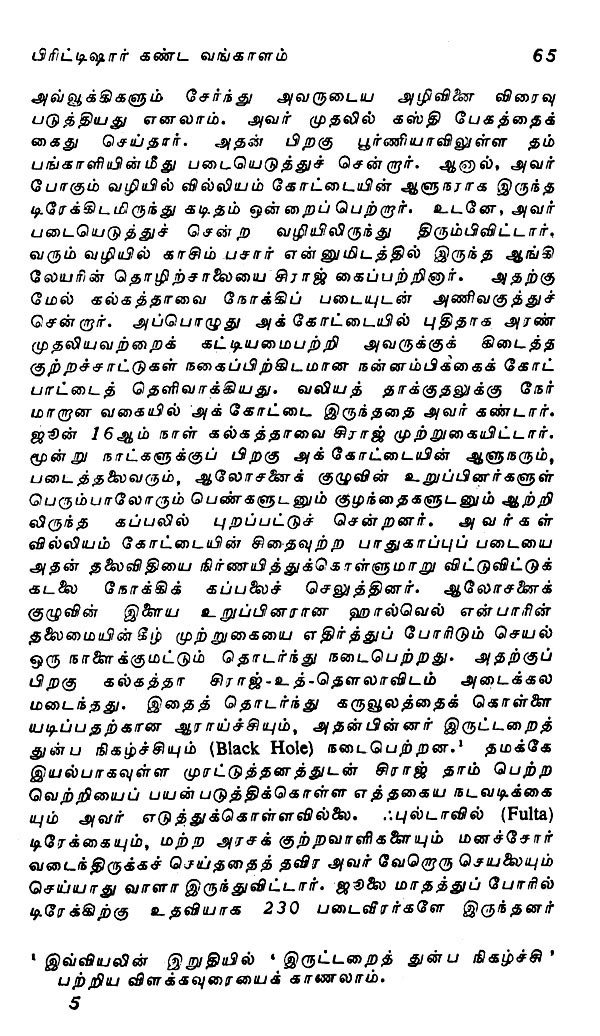 பிரிட்டிஷார் கண்ட வங்காளம் 65
அவ்வூக்கிகளும் சேர்ந்து அவருடைய அழிவினை விரைவு
படுத்தியது எனலாம். அவர் முதலில் கஸ்தி பேகத்தைக்
கைது செய்தார். அதன் பிறகு பூர்ணியாவிலுள்ள தம்
பங்காளியின்மீது படையெடுத்துச் சென்றார். ஆனால், அவர்
போகும் வழியில் வில்லியம் கோட்டையின் ஆளுநராக இருந்த
டிரேக்கிடமிருந்து கடிதம் ஒன்றைப்பெற்றார். உடனே, அவர்
படையெடுத்துச் சென்ற வழியிலிருந்து திரும்பிவிட்டார்.
வரும் வழியில் காசிம் பசார் என்னுமிடத்தில் இருந்த ஆங்கி
லேயரின் தொழிற்சாலையை சிராஜ் கைப்பற்றினார். அதற்கு
மேல் கல்கத்தாவை நோக்கிப் படையுடன் அணிவகுத்துச்
சென்றார். அப்பொழுது அக்கோட்டையில் புதிதாக அரண்
முதலியவற்றைக் கட்டியமைபற்றி அவருக்குக் கிடைத்த
குற்றச்சாட்டுகள் நகைப்பிற்கிடமான நன்னம்பிக்கைக் கோட்
பாட்டைத் தெளிவாக்கியது. வலியத் தாக்குதலுக்கு நேர்
மாறான வகையில் அக் கோட்டை இருந்ததை அவர் கண்டார்.
ஜூன் 16ஆம் நாள் கல்கத்தாவை சிராஜ் முற்றுகையிட்டார்.
மூன்று நாட்களுக்குப் பிறகு அக்கோட்டையின் ஆளுநரும்,
படைத்தலைவரும், ஆலோசணைக் குழுவின் உறுப்பினர்களுள்
பெரும்பாலோரும் பெண்களுடனும் குழந்தைகளுடனும் ஆற்றி
லிருந்த கப்பலில் புறப்பட்டுச் சென்றனர். அவர்கள்
வில்லியம் கோட்டையின் சிதைவுற்ற பாதுகாப்புப் படையை
அதன் தலைவிதியை நிர்ணயித்துக்கொள்ளுமாறு விட்டுவிட்டுக்
கடலை நோக்கிக் கப்பலைச் செலுத்தினர். ஆலோசனைக்
குழுவின் இளைய உறுப்பினரான ஹால்வெல் என்பாரின்
தலைமையின்கீழ் முற்றுகையை எதிர்த்துப் போரிடும் செயல்
ஒரு நாளைக்குமட்டும் தொடர்ந்து நடைபெற்றது. அதற்குப்
பிறகு கல்கத்தா சிராஜ்-உத்-தௌலாவிடம் அடைக்கல
மடைந்தது. இதைத் தொடர்ந்து கருவூலத்தைக் கொள்ளை
யடிப்பதற்கான ஆராய்ச்சியும், அதன்பின்னர் இருட்டறைத்
துன்ப நிகழ்ச்சியும் (Black Hole) நடைபெற்றன.¹ தமக்கே
இயல்பாகவுள்ள முரட்டுத்தனத்துடன் சிராஜ் தாம் பெற்ற
வெற்றியைப் பயன்படுத்திக்கொள்ள எத்தகைய நடவடிக்கை
யும் அவர் எடுத்துக்கொள்ளவில்லை. ஃபுல்டாவில் (Fulta)
டிரேக்கையும், மற்ற அரசக் குற்றவாளிகளையும் மனச்சோர்
வடைந்திருக்கச் செய்ததைத் தவிர அவர் வேறொரு செயலையும்
செய்யாது வாளா இருந்துவிட்டார். ஜூலை மாதத்துப் போரில்
டிரேக்கிற்கு உதவியாக 230 படைவீரர்களே இருந்தனர்
¹ இவ்வியலின் இறுதியில் ‘இருட்டறைத் துன்ப நிகழ்ச்சி’
பற்றிய விளக்கவுரையைக் காணலாம்.
5